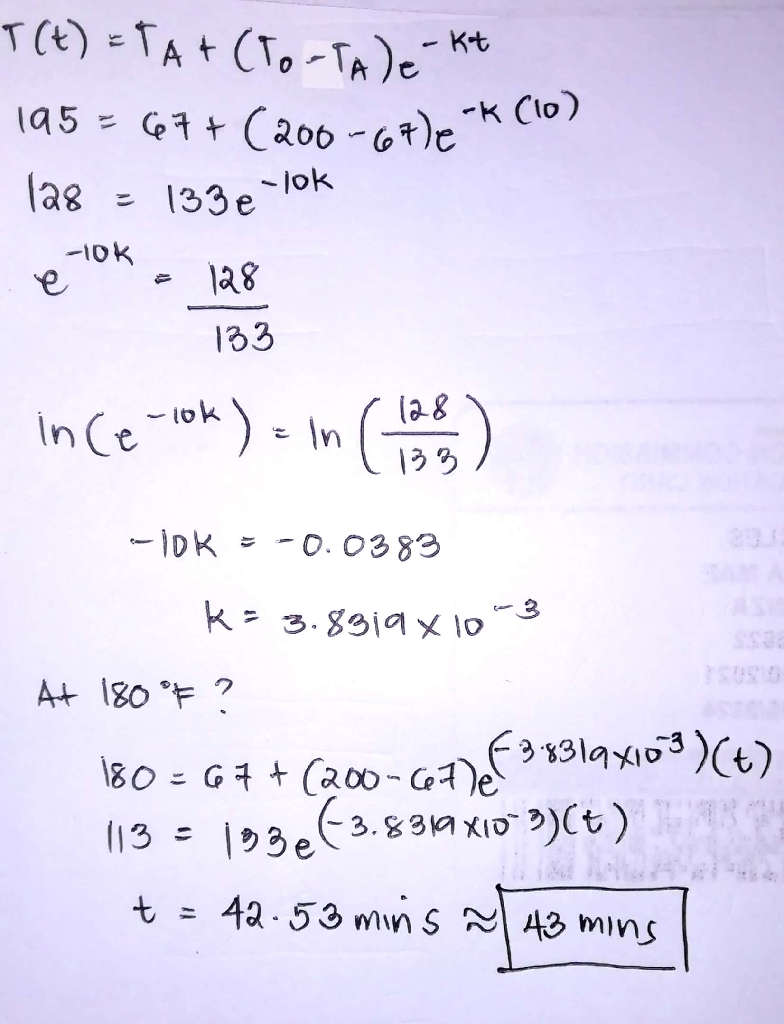 T(t) = TA + (To - TA)e^-Kt
195 = 67 + (200 - 67)e^-K(10)
128 = 133e^-10K
e^-10K = 128/133
ln(e^-10K) = ln(128/133)
-10K = -0.0383
K = 3.8319 x 10^-3
At 180 °F ?
180 = 67 + (200 - 67)e^(-3.8319x10^-3)(t)
113 = 133e^(-3.8319x10^-3)(t)
t = 42.53 mins ≈ 43 mins